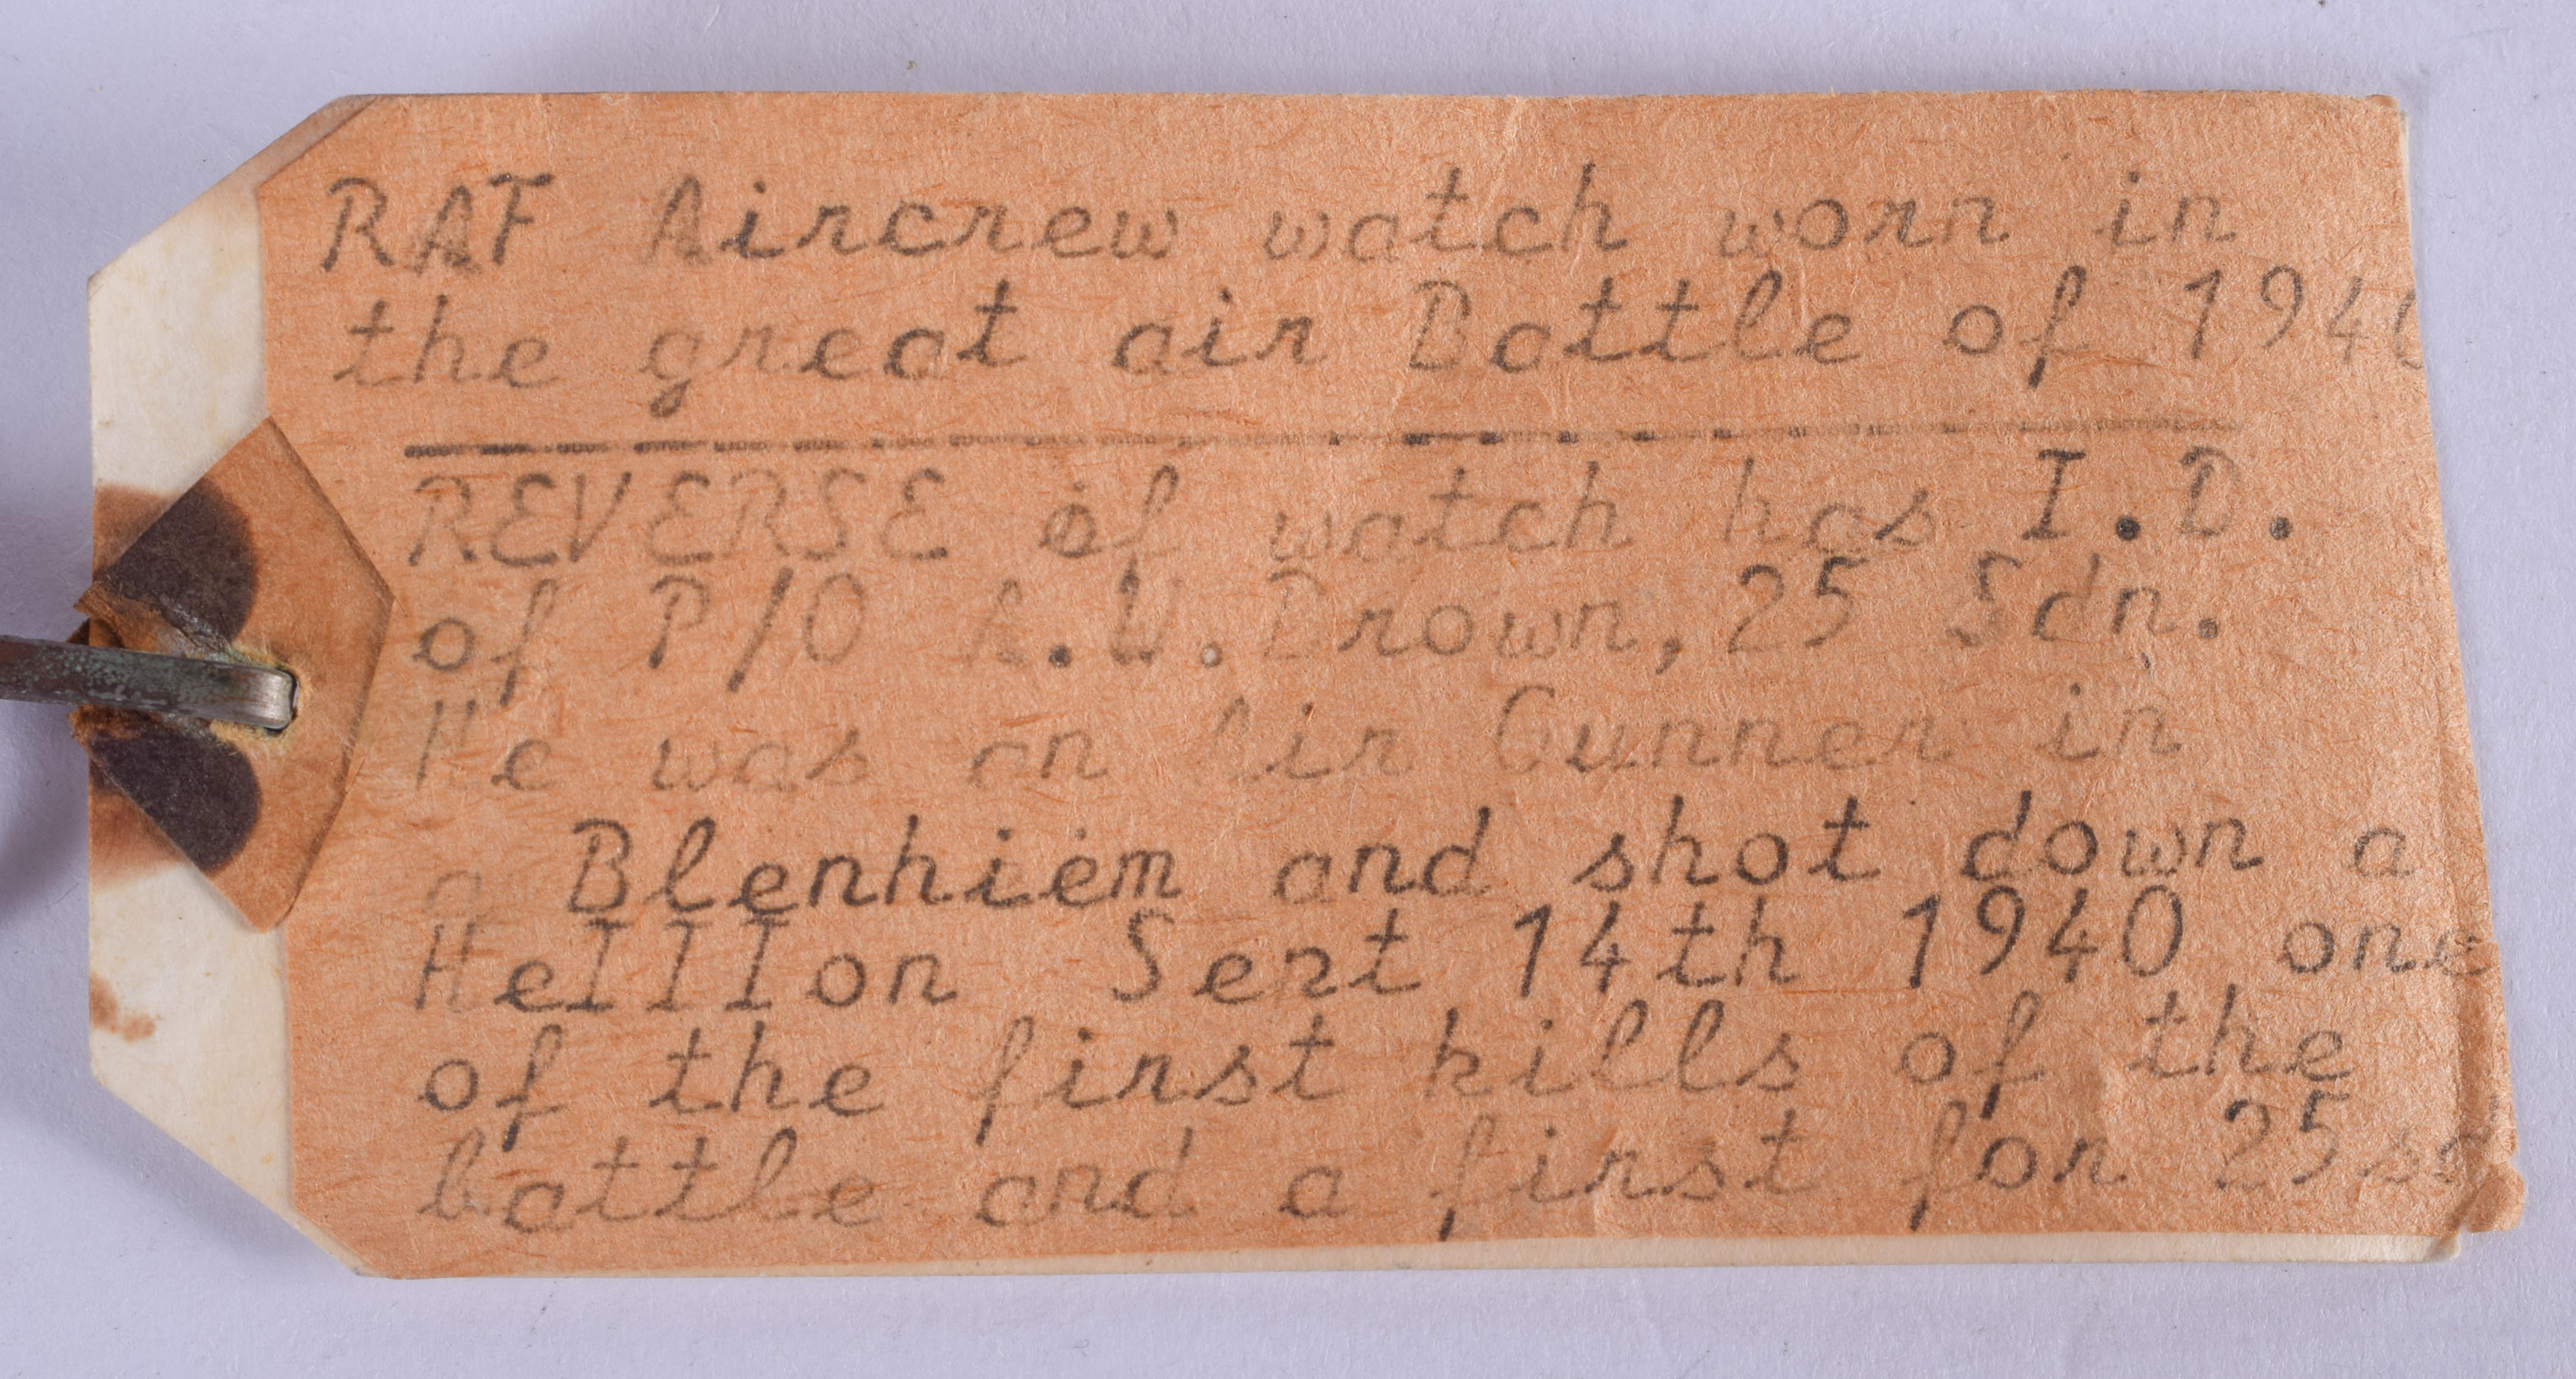 RAF Aircrew watch worn in
the great air Battle of 1940
REVERSE of watch has I.D.
of P/O A.W.Brown, 25 Sdn.
He was an Air Gunner in
a Blenhiem and shot down a
HeIIIon Sept 14th 1940 one
of the first kills of the
battle and a first for 25sd